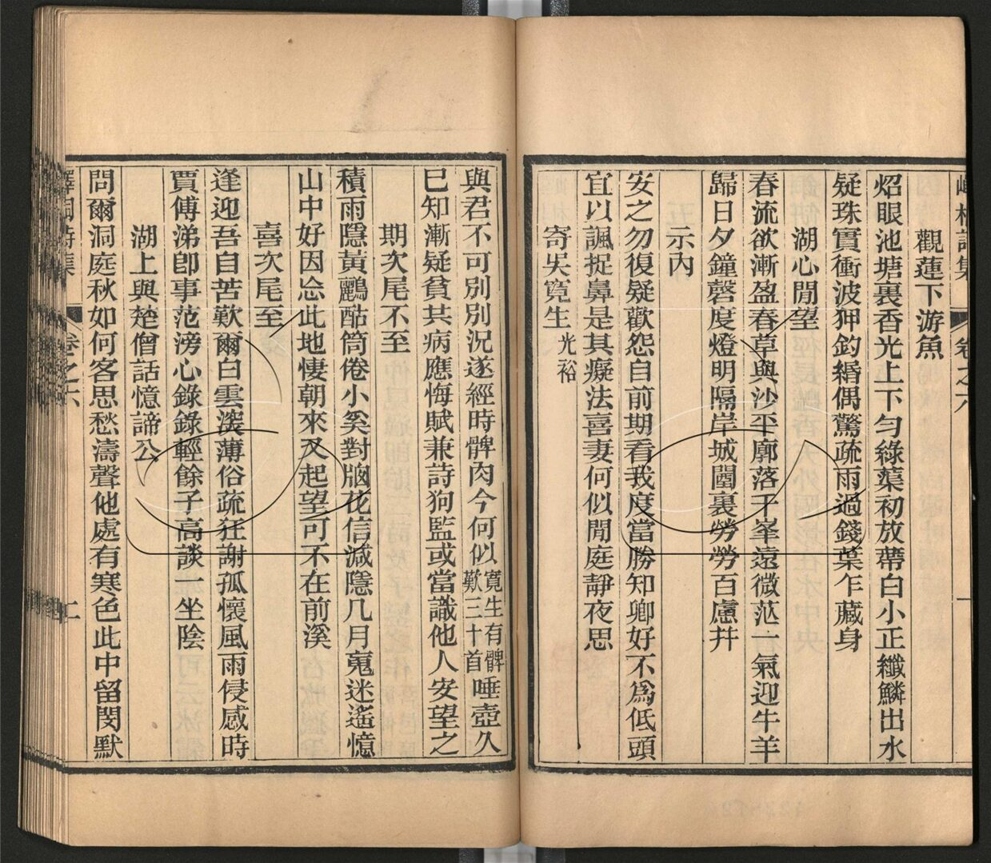 觀蓮下游魚
炤眼池塘裏香光上下勻綠葉初放蔕白小正纖鱗出水
疑珠實衝波狎釣緡偶驚疏雨過錢葉乍藏身
湖心閒望
春流欲漸盈春草與沙平廓落千峯遠微茫一氣迎牛羊
歸日夕鐘磬度燈明隔岸城闉裏勞勞百慮幷
示內
安之勿復疑歡怨自前期看我度當勝知卿好不爲低頭
宜以諷捉鼻是其癡法喜妻何似閒庭靜夜思
寄吳寬生光裕
與君不可別別況遂經時髀肉今何似寬生有髀歎三十首唾壺久
已知漸疑貧共病應悔賦兼詩狗監或當識他人安望之
期次尾不至
積雨隱黃鸝酤筒倦小奚對牕花信減隱几月蒐迷遙憶
山中好因忩此地悽朝來又起望可不在前溪
喜次尾至
逢迎吾自苦歎爾白雲深薄俗疏狂謝孤懷風雨侵感時
賈傅涕卽事范滂心錄錄輕餘子高談一坐陰
湖上與楚僧話憶諦公
問爾洞庭秋如何客思愁濤聲他處有寒色此中留閔默
卷之六